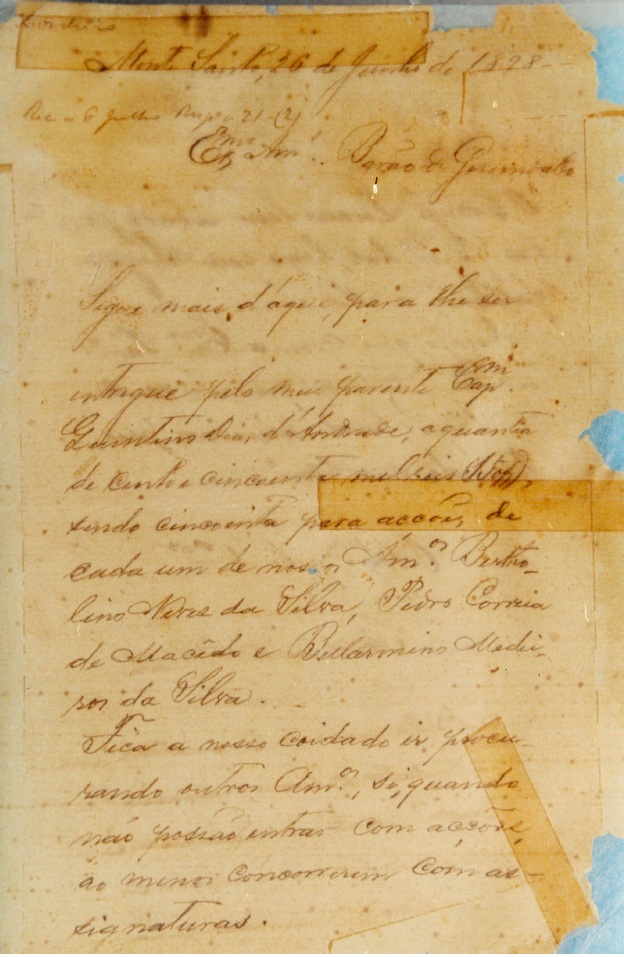 Cordeiro
Monte Santo, 26 de Junho de 1898
Rec. a 6 Julho Resp. a 21-(2)
Exmo. Am.º Barão de Geremoabo
Segue mais, d'aqui, para lhe ser
entregue pelo meu parente Capm.
Quintino Dias d'Andrade, a quantia
de cento e cincoenta mil reis
sendo cincoenta para acções, de
cada um de nossos Am.ºs Bertho-
lino Neves da Silva, Pedro Correia
de Macêdo e Bellarmino Medei-
ros da Silva.
Fica a nosso coidado ir procu-
rando outros Am.ºs, si, quando
não possão entrar com acções,
ao menos concorrerem com as-
signaturas.